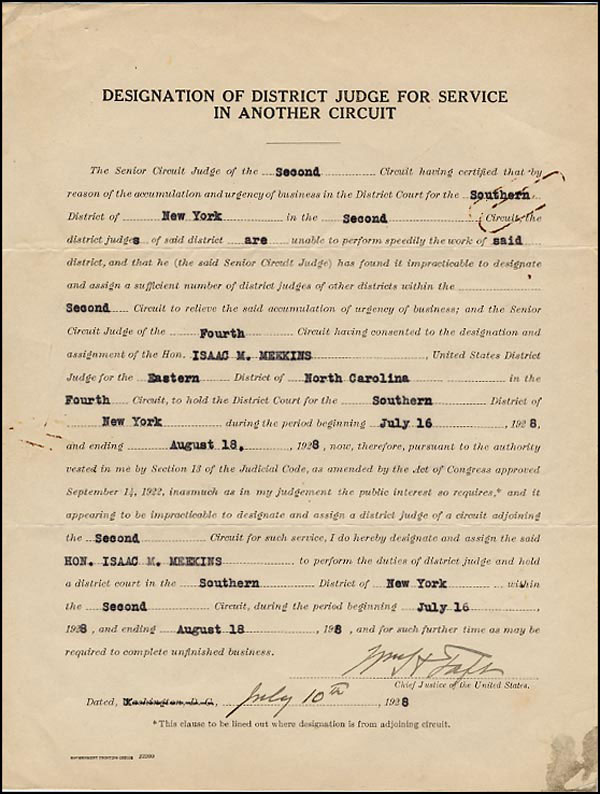 DESIGNATION OF DISTRICT JUDGE FOR SERVICE
IN ANOTHER CIRCUIT
The Senior Circuit Judge of the Second Circuit having certified that by
reason of the accumulation and urgency of business in the District Court for the Southern
District of New York in the Second Circuit, the
district judges of said district are unable to perform speedily the work of said
district, and that he (the said Senior Circuit Judge) has found it impracticable to designate
and assign a sufficient number of district judges of other districts within the
Second Circuit to relieve the said accumulation of urgency of business; and the Senior
Circuit Judge of the Fourth Circuit having consented to the designation and
assignment of the Hon. ISAAC M. MEEKINS, United States District
Judge for the Eastern District of North Carolina in the
Fourth Circuit, to hold the District Court for the Southern District of
New York during the period beginning July 16, 1928,
and ending August 18., 1928, now, therefore, pursuant to the authority
vested in me by Section 13 of the Judicial Code, as amended by the Act of Congress approved
September 14, 1922, inasmuch as in my judgement the public interest so requires,* and it
appearing to be impracticable to designate and assign a district judge of a circuit adjoining
the Second Circuit for such service, I do hereby designate and assign the said
HON. ISAAC M. MEEKINS to perform the duties of district judge and hold
a district court in the Southern District of New York within
the Second Circuit, during the period beginning July 16,
1928, and ending August 18, 1928, and for such further time as may be
required to complete unfinished business.
Wm H Taft
Chief Justice of the United States.
Dated, Washington, D.C., July 10th, 1928
*This clause to be lined out where designation is from adjoining circuit.
GOVERNMENT PRINTING OFFICE